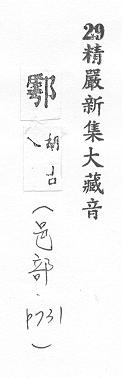 29精嚴新集大藏音
鄠
胡古
(邑部,p731)